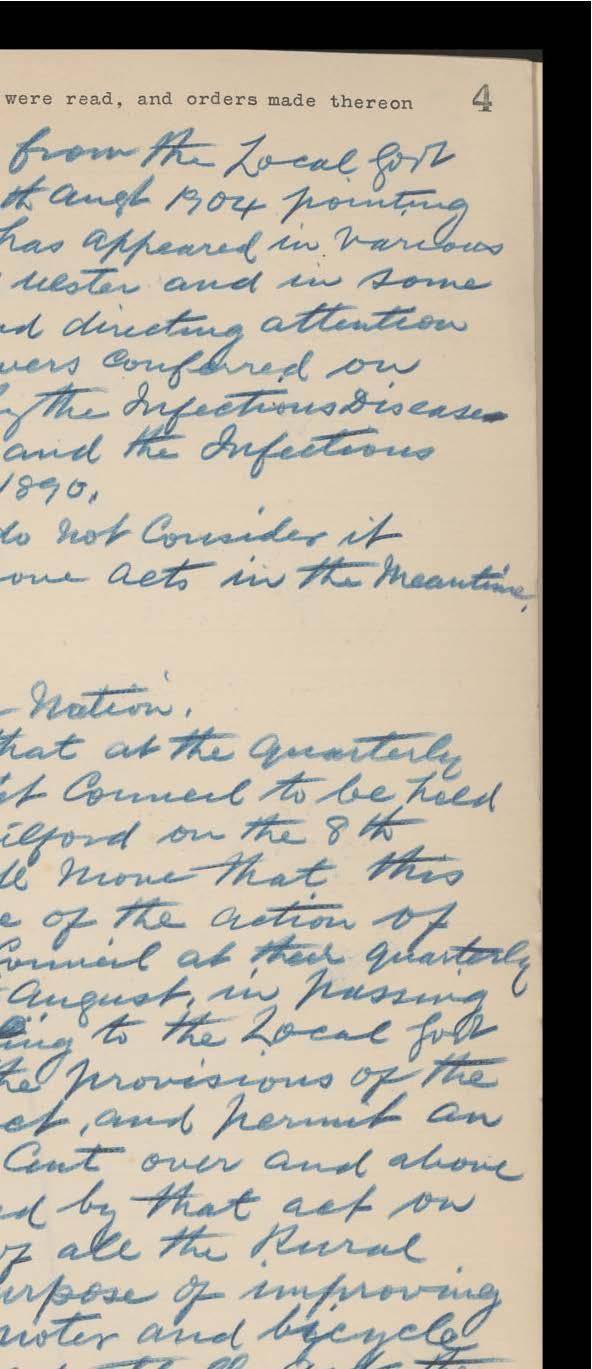 were read, and orders made thereon 4
from the Local Govt
th Augt 1904 pointing
has appeared in various
Ulster and in some
nd directing attention
wers conferred on
by the Infectious Diseases
and the Infectious
1890.
do not Consider it
ove acts in the Meantime.
Nation.
that at the quarterly
ct Council to be held
ilford on the 8th
ll move that this
e of the action of
Council at their quarterly
August, in passing
ing to the Local Govt
the provisions of the
ct, and permit an
Cent over and above
ed by that act on
of all the Rural
urpose of improving
motor and bicycle